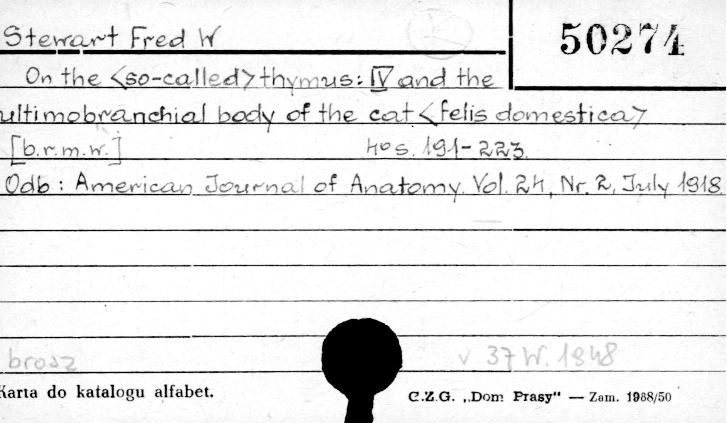 Stewart Fred W
50274
On the <so-called> thymus: IV and the
ultimobranchial body of the cat <felis domestica>
[b.r.m.w.] 4° s. 191-223.
Odb: American Journal of Anatomy. Vol. 24, Nr. 2, July 1918
brosz v 37 W. 1848
Karta do katalogu alfabet. C.Z.G. „Dom Prasy" — Zam. 1988/50